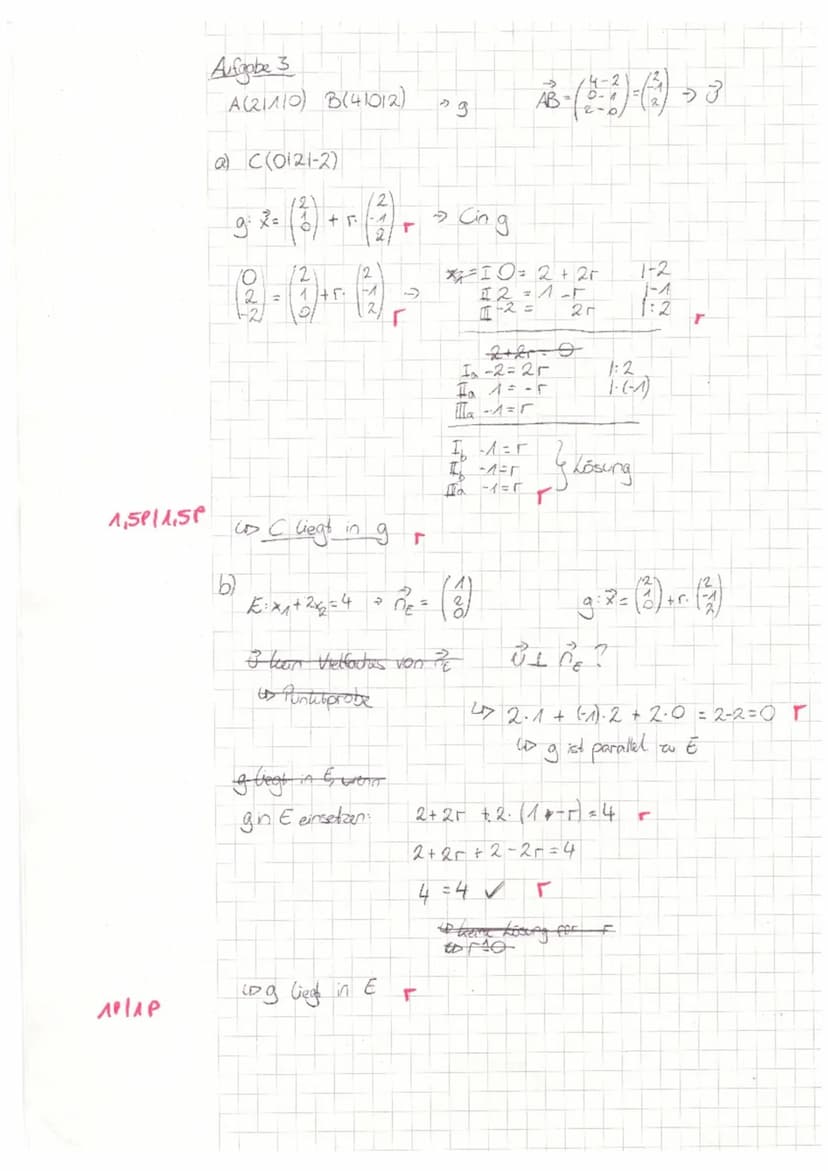 Aufgabe 3
A(2|1|0) B(4|0|2) → g AB⃗ = (4-2 0-1 2-0) = (2 -1 2) → v⃗
a) C(0|2|-2)
g: x⃗ = (2 1 0) + r· (2 -1 2) r → C in g
(0 2 -2) = (2 1 0) + r· (2 -1 2) → r
I 0 = 2 + 2r |-2
II 2 = 1 - r |-1
III -2 = 2r |:2 r
2+2r = 0
Ia -2 = 2r |:2
IIa 1 = -r |·(-1)
IIIa -1 = r
Ib -1 = r
IIb -1 = r } Lösung
IIIa -1 = r r
1,5P/1,5P
↳ C liegt in g r
b)
E: x₁ + 2x₂ = 4 → n⃗E = (1 2 0) g: x⃗ = (2 1 0) + r· (2 -1 2)
v⃗ kein Vielfaches von n⃗E v⃗ ⊥ n⃗E ?
↳ Punktprobe
↳ 2·1 + (-1)·2 + 2·0 = 2-2=0 r
↳ g ist parallel zu E
g liegt in E, wenn
g in E einsetzen: 2+2r + 2·(1+-r) = 4 r
2+2r+2-2r=4
4 = 4 ✓ r
↳ keine Lösung für r
↳ g liegt in E r
1P/1P